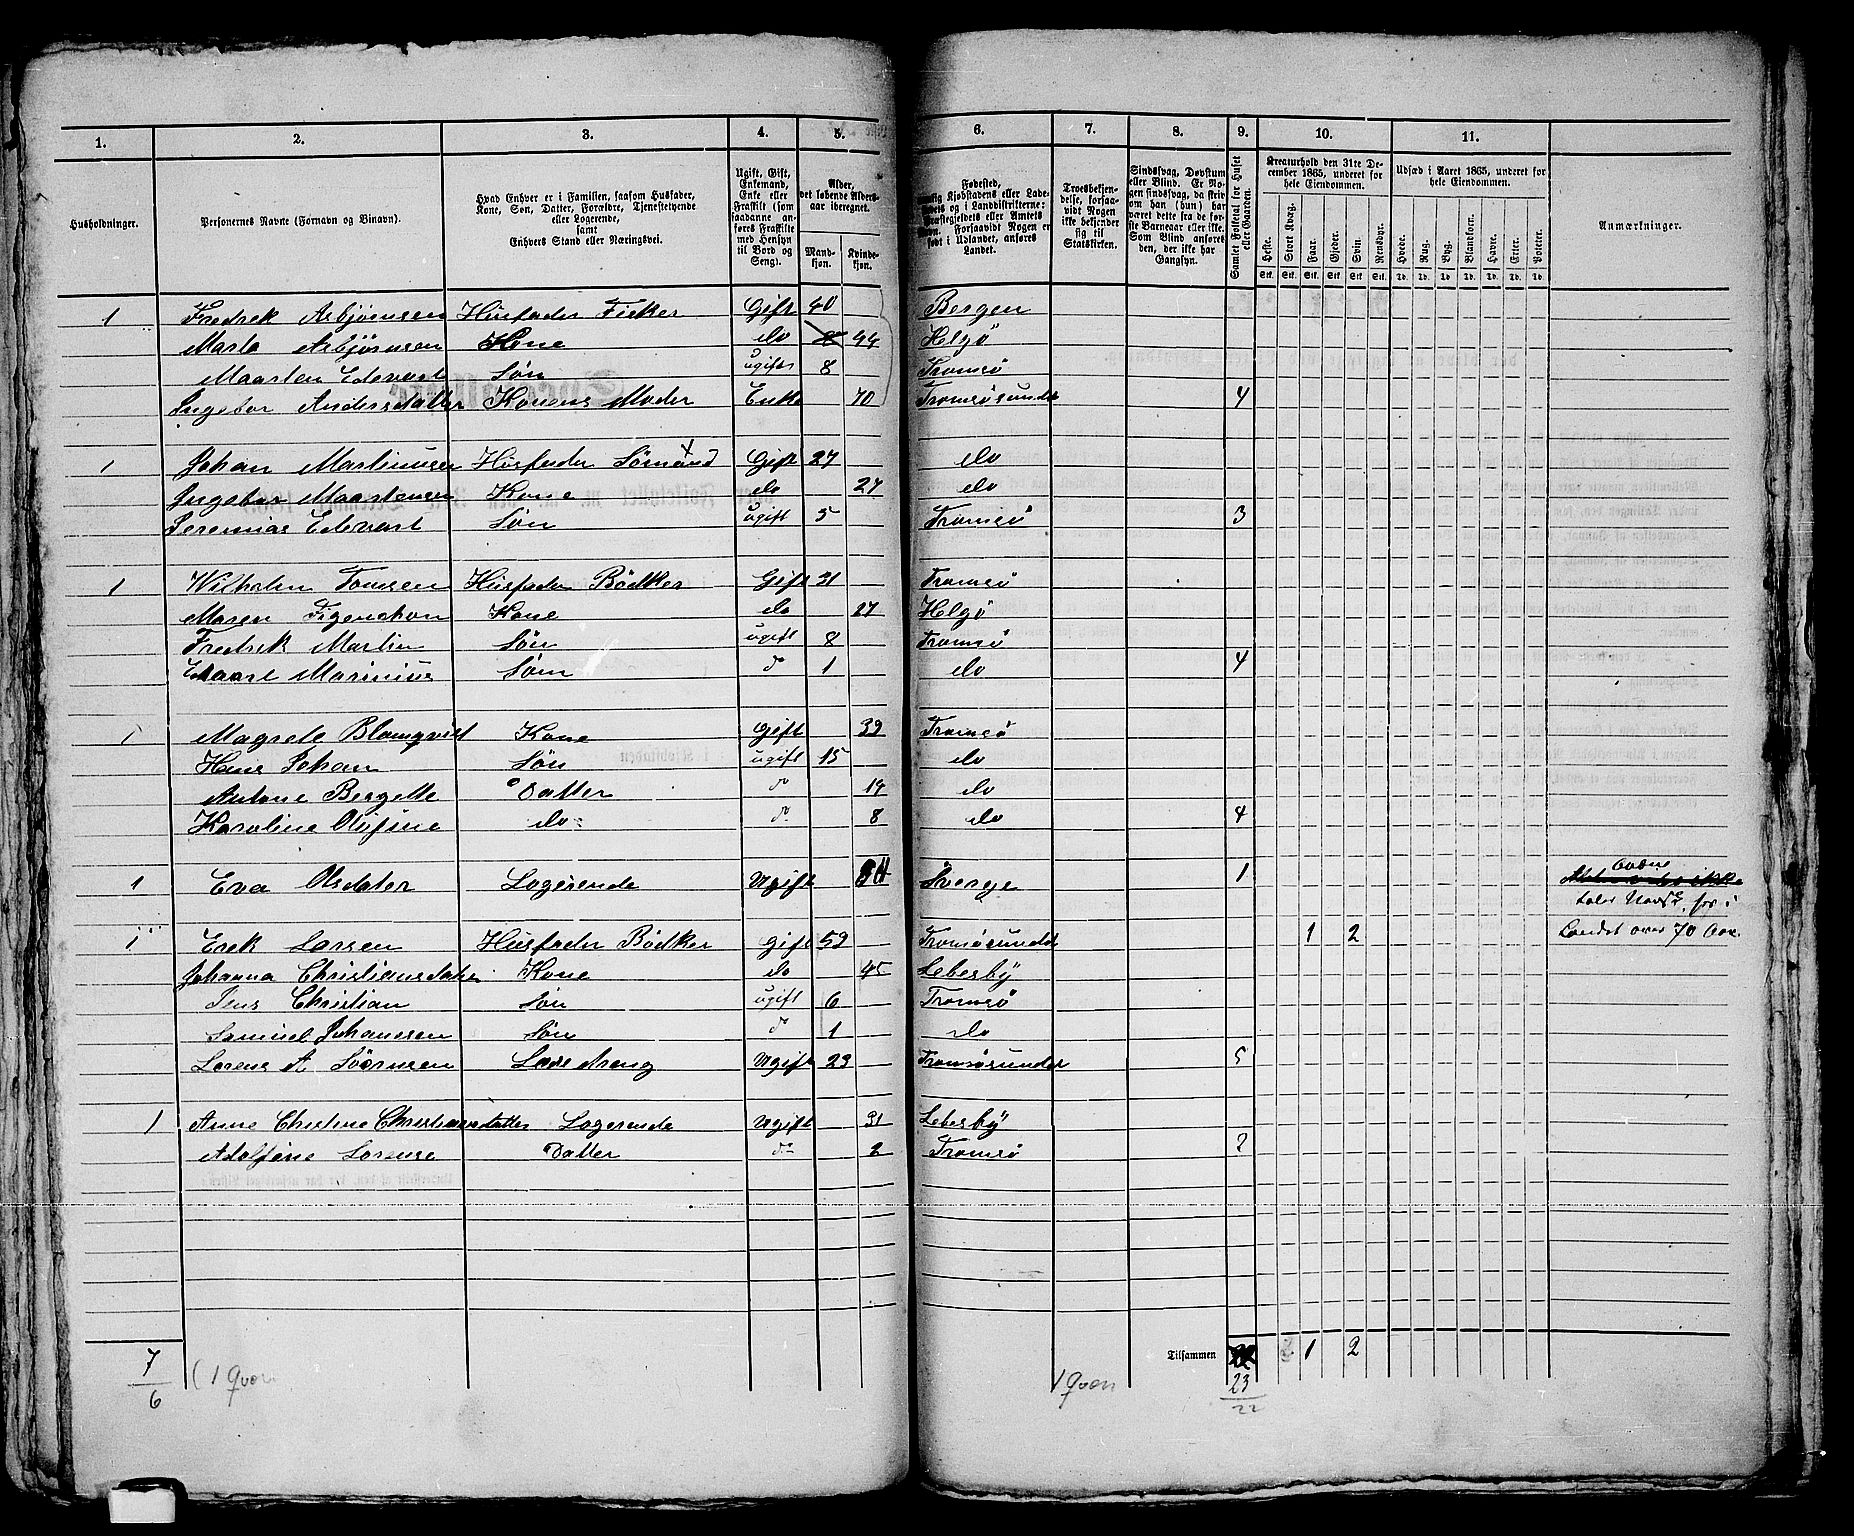 1. 2. 3. 4. 5. 6. 7. 8. 9. 10. 11.
Husholdninger.
Personernes Navne (Fornavn og Binavn).
Hvad Enhver er i Familien, saasom Husfader,
Kone, Søn, Datter, Forældre, Tjenestetyende
eller Logerende,
samt
Enhvers Stand eller Næringsvei.
Ugift, Gift,
Enkemand,
Enke eller
Fraskilt (som
saadanne an-
føres Fraskilte
med Hensyn
til Bord og
Seng).
Alder,
det løbende Alders-
aar iberegnet.
Mand-
kjøn.
Kvinde-
kjøn.
Fødested,
Kjøbstadens eller Lade-
og i Landdistrikterne:
Præstegjeldets eller Amtets
Navn. Forsaavidt Nogen er
født i Udlandet, anføres
Landet.
Troesbekjen-
delse, forsaa-
vidt Nogen
ikke bekjender
sig til
Statskirken.
Sindssvag, Døvstum
eller Blind. Er No-
gen sindssvag, da skriv
om han (hun) har
været dette fra de før-
ste Barneaar eller ikke.
Som Blind anføres
den, der ikke har
Gangsyn.
Samlet Folketal for Huset
eller Gaarden.
Kreaturhold den 31te De-
cember 1865, underet for
hele Eiendommen.
Heste. Stort Kvæg. Faar. Gjeder. Svin. Rensdyr.
Stk. Stk. Stk. Stk. Stk. Stk.
Udsæd i Aaret 1865, underet for
hele Eiendommen.
Hvede. Rug. Byg. Blandkorn. Havre. Erter. Poteter.
Td. Td. Td. Td. Td. Td. Td.
Anmærkninger.
1 Fredrek Asbjørnsen Husfader Fisker Gift 40 Bergen
Marta Asbjørnsen Kone do 44 Helgö
Maarten Edevart Søn ugift 8 Tromsö
Ingebor Andersdatter Konens Moder Enke 70 Tromsösundet 4
1 Johan Martinusen Husfader Sømand Gift 27 do
Ingebor Maartensen Kone do 27 do
Jeremias Edevart Søn ugift 5 Tromsö 3
1 Wilhelm Tomsen Husfader Bödker Gift 31 Tromsö
Maren Figenschou Kone do 27 Helgö
Fredrek Martin Søn ugift 8 Tromsö
Marinius Søn do 1 do 4
1 Magrete Blomqvist Kone Gift 39 Tromsö
Hans Johan Søn ugift 15 do
Antone Bergette Datter do 19 do
Karoline Olufine do do 8 do 4
1 Eva Olsdater Logerende Ugift Sverge 1
1 Erek Larsen Husfader Bödker Gift 59 Tromsösundet 1 2
Landet over 70 Aar.
Johanna Christiansdater Kone do 45 Lebesby
Jens Christian Søn ugift 6 Tromsö
Samuel Johannesen Søn do 1 do
Lorens A Sörensen Læredreng Ugift 23 Tromsösundet 5
1 Anne Christine Christiansdatter Logerende Ugift 31 Lebesby
Adolfine Lorense Datter do 2 Tromsö 2
Tilsammen 1 2
7
6
(1 Qvæn
1 Qvæn
23
22